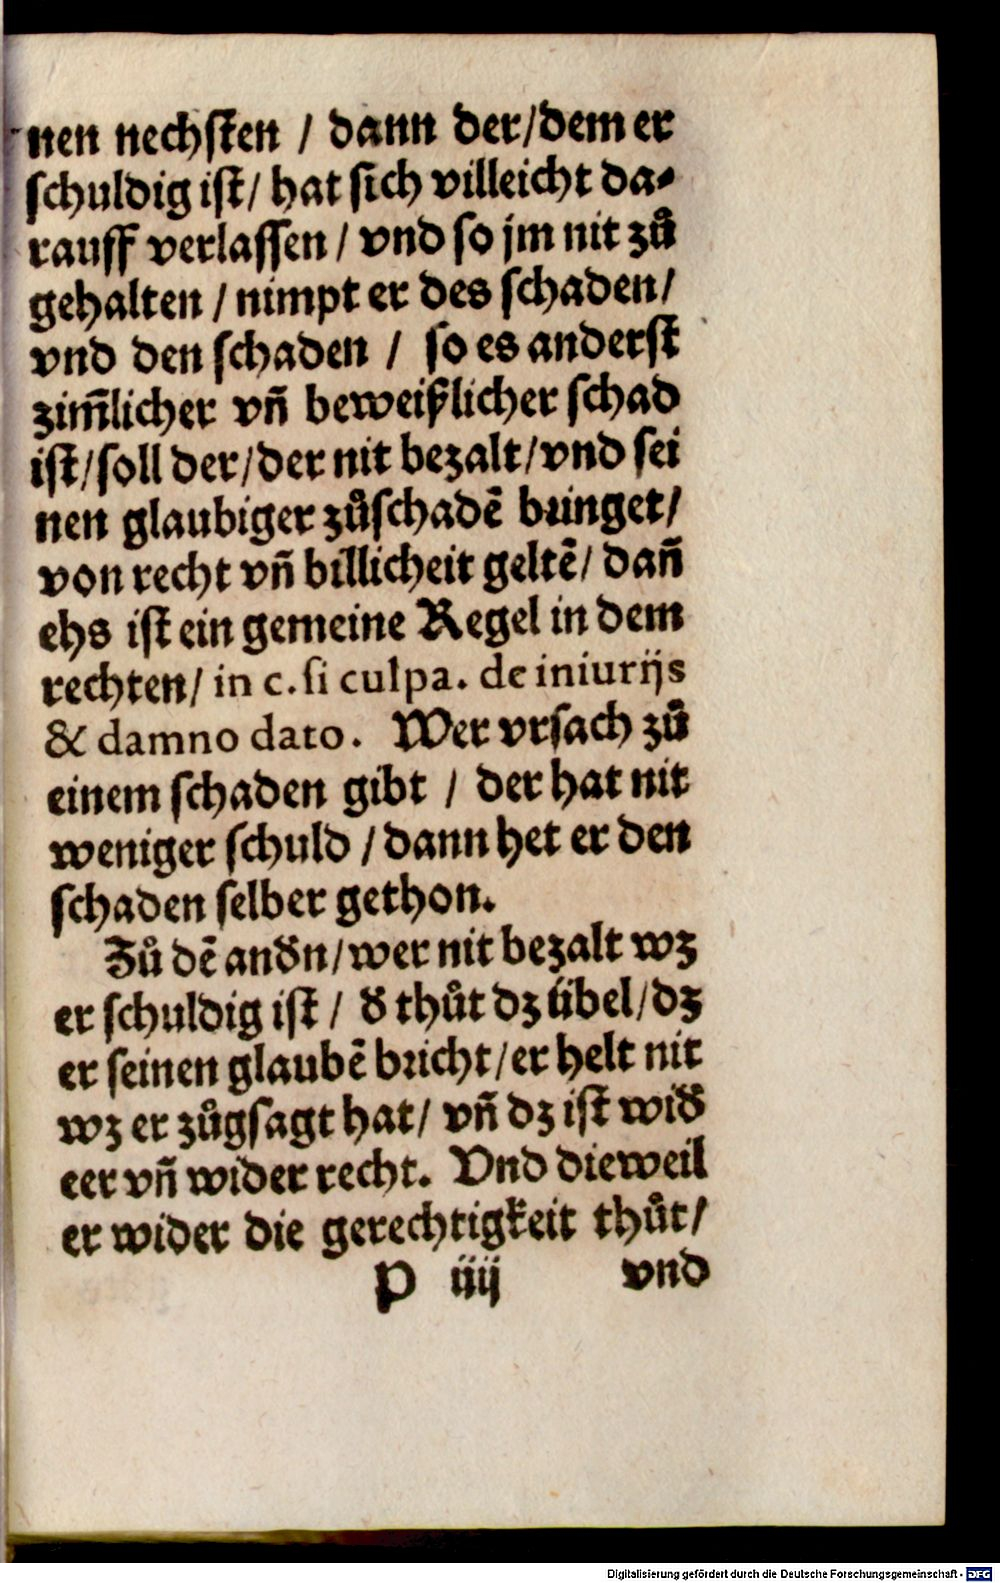 nen nechsten / dann der/dem er
schuldig ist/ hat sich villeicht da-
rauff verlassen / vnd so jm nit zů
gehalten / nimpt er des schaden/
vnd den schaden / so es anderst
zim̃licher vñ beweißlicher schad
ist/soll der/der nit bezalt/vnd sei
nen glaubiger zůschadẽ bringet/
von recht vñ billicheit geltẽ/ dañ
ehs ist ein gemeine Regel in dem
rechten/ in c. si culpa. de iniurijs
& damno dato. Wer vrsach zů
einem schaden gibt / der hat nit
weniger schuld / dann het er den
schaden selber gethon.
Zů dẽ andn̄/wer nit bezalt wz
er schuldig ist / d̄ thůt dz übel/dz
er seinen glaubẽ bricht/er helt nit
wz er zůgsagt hat/ vñ dz ist wid̄
eer vñ wider recht. Vnd dieweil
er wider die gerechtigkeit thůt/
P iiij vnd
Digitalisierung gefördert durch die Deutsche Forschungsgemeinschaft - DFG